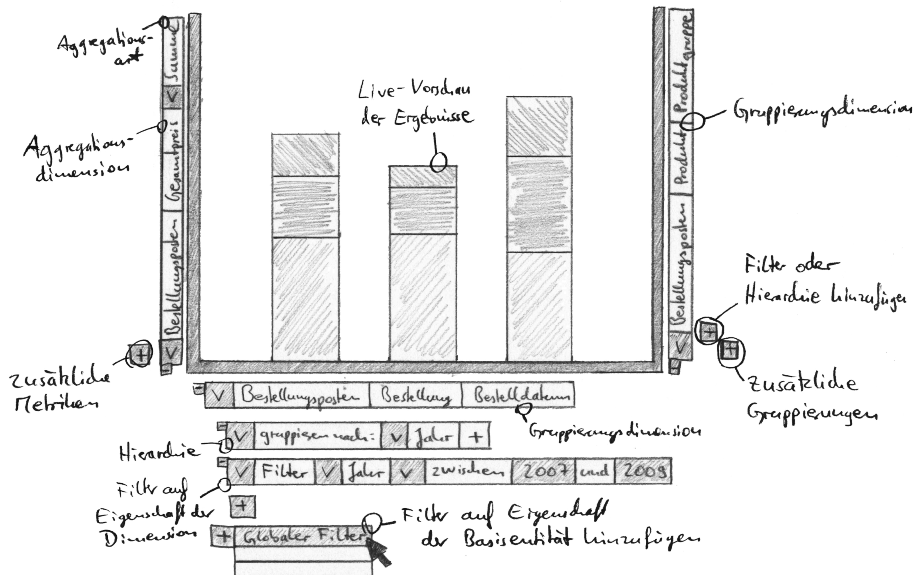 Aggregations-
art
Summe
Aggregations-
dimension
Gesamtpreis
Bestellungsposten
zusätzliche
Metriken
Live-Vorschau
der Ergebnisse
Produktgruppe
Produkt
Bestellungsposten
Gruppierungsdimension
Filter oder
Hierarchie hinzufügen
zusätzliche
Gruppierungen
Bestellungsposten Bestellung Bestelldatum
Gruppierungsdimension
gruppieren nach: Jahr +
Hierarchie
Filter Jahr zwischen 2007 und 2009
Filter auf
Eigenschaft der
Dimension
+ Globaler Filter
Filter auf Eigenschaft
der Basisentität hinzufügen